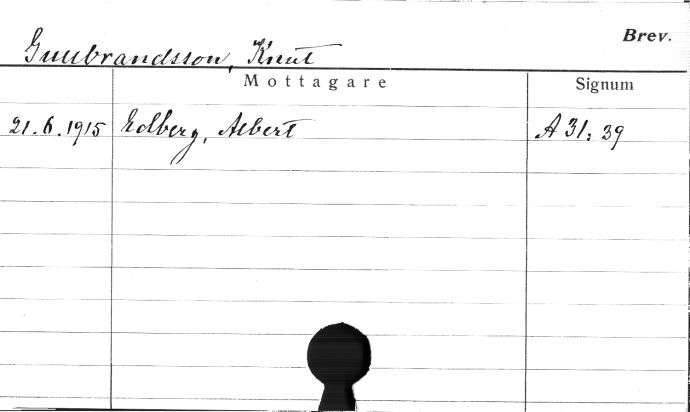 Brev.
Gudbrandsson, Knut
Mottagare Signum
21.6.1915 Edberg, Albert A 31: 39